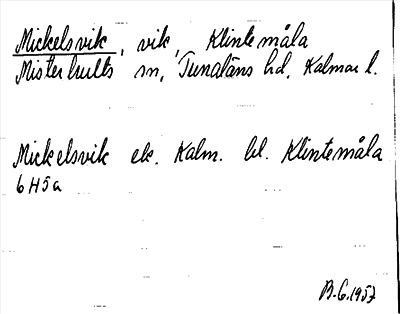 Mickelsvik, vik, Klintemåla
Misterhults sn, Tunaläns hd, Kalmar l.
Mickelsvik ek. Kalm. bl. Klintemåla
6H5a
B.G.1957